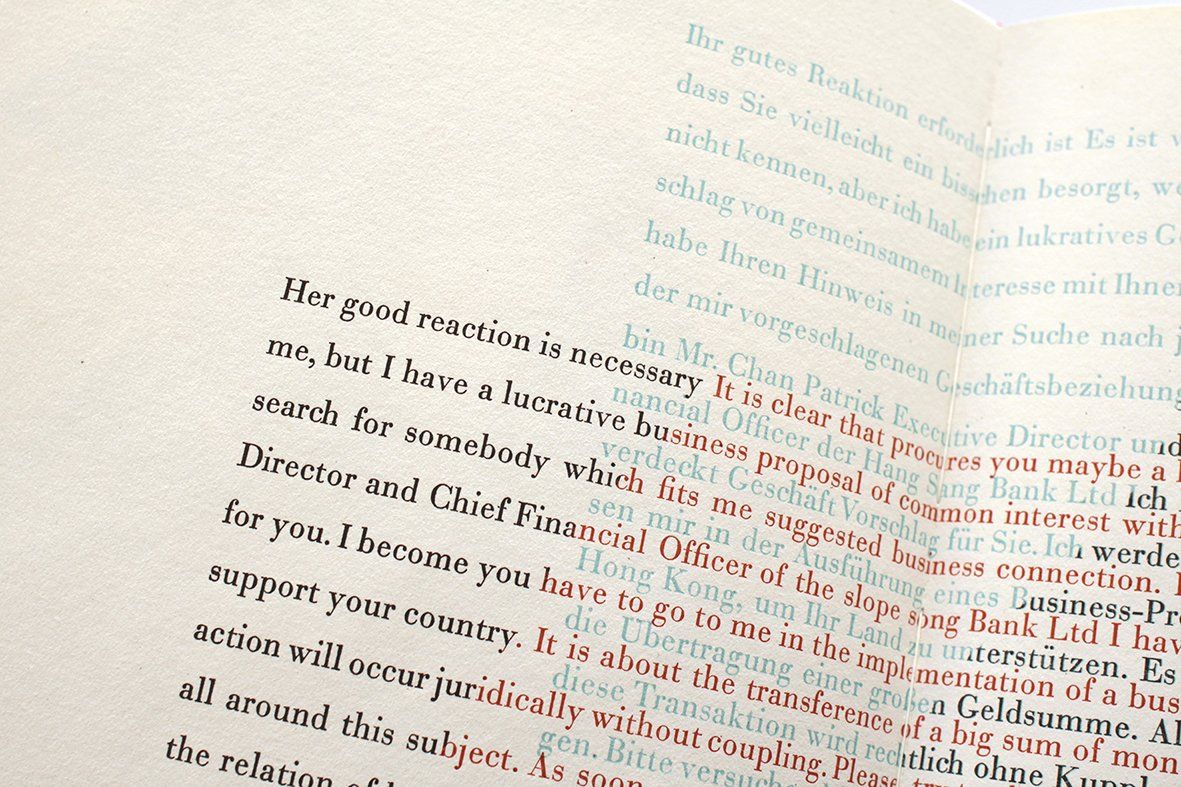 Ihr gutes Reaktion erforderlich ist Es ist
dass Sie vielleicht ein bisschen besorgt, we
nicht kennen, aber ich habe ein lukratives G
schlag von gemeinsamem Interesse mit Ihne
habe Ihren Hinweis in meiner Suche nach j
der mir vorgeschlagenen Geschäftsbeziehung
bin Mr. Chan Patrick Executive Director und
nancial Officer der Hang Sang Bank Ltd Ich
verdeckt Geschäft Vorschlag für Sie. Ich werde
sen mir in der Ausführung eines Business-Pr
Hong Kong, um Ihr Land zu unterstützen. Es
die Übertragung einer großen Geldsumme. Al
diese Transaktion wird rechtlich ohne Kuppl
gen. Bitte versuch
Her good reaction is necessary It is clear that procures you maybe a
me, but I have a lucrative business proposal of common interest with
search for somebody which fits me suggested business connection.
Director and Chief Financial Officer of the slope song Bank Ltd I hav
for you. I become you have to go to me in the implementation of a bus
support your country. It is about the transference of a big sum of mon
action will occur juridically without coupling. Please
all around this subject. As soon
the relation of